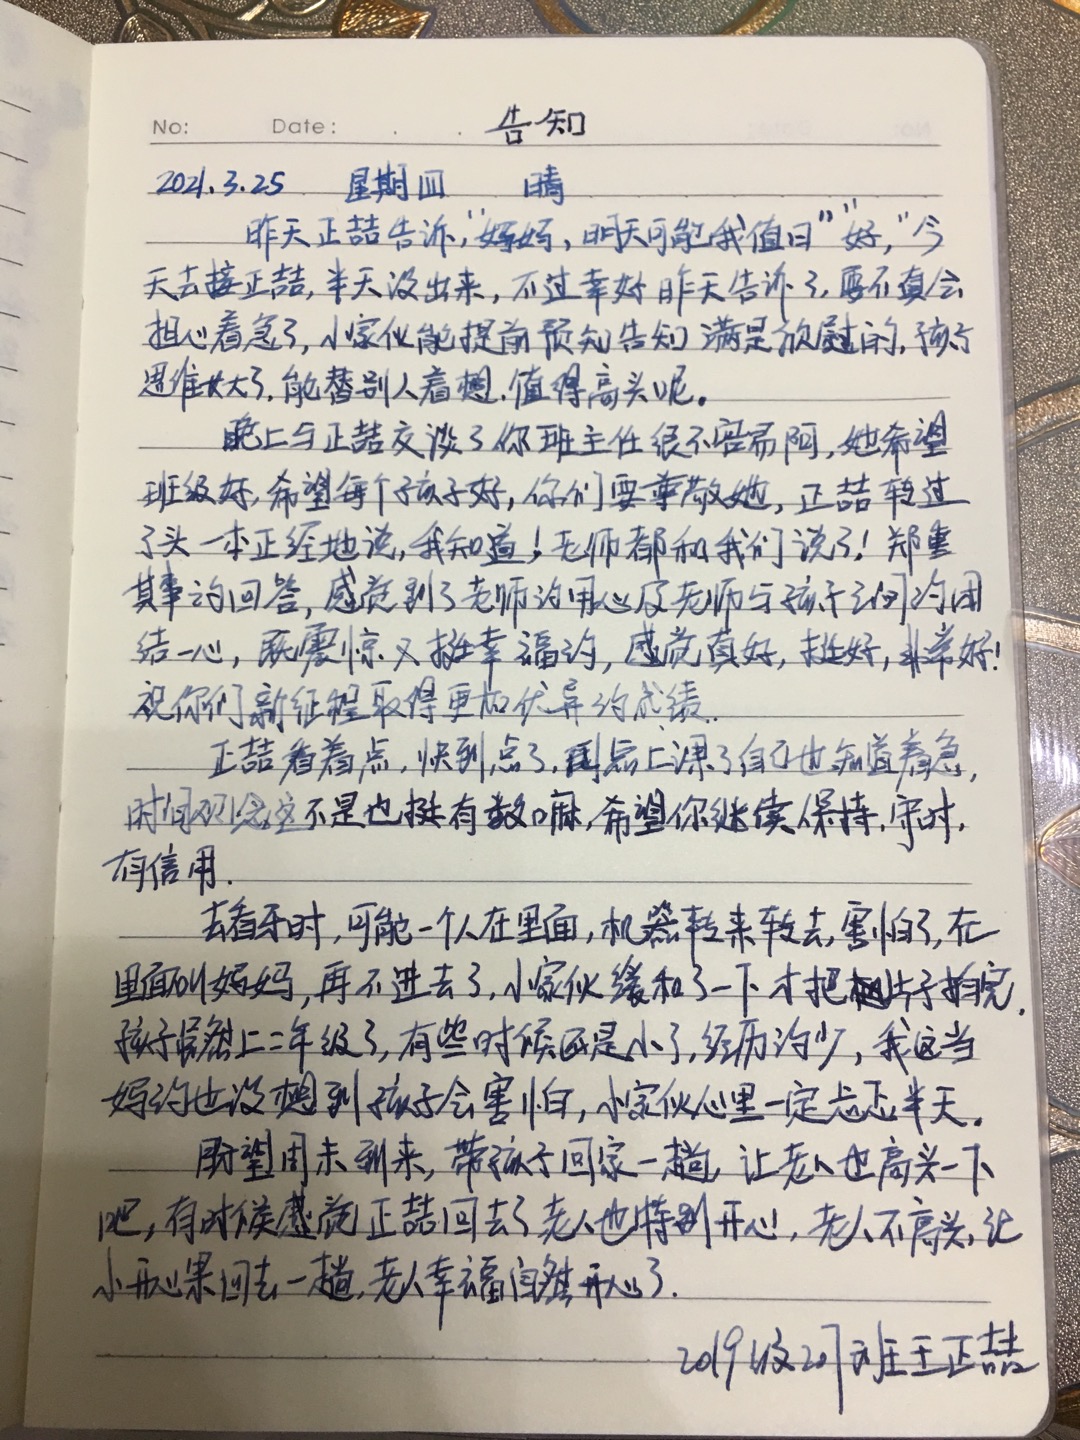 No: Date: 告知
2021.3.25 星期四 晴
昨天正喆告诉，“妈妈，明天可能我值日”“好，”今
天去接正喆，半天没出来，不过幸好昨天告诉了，要不真会
担心着急了，小家伙能提前预知告知满是欣慰的，孩子
思维长大了，能替别人着想，值得高兴呢。
晚上与正喆交谈了你班主任很不容易阿，她希望
班级好，希望每个孩子好，你们要尊敬她，正喆转过
了头一本正经地说，我知道！老师都和我们说了！郑重
其事的回答，感觉到了老师的用心及老师与孩子之间的团
结一心，既震惊又挺幸福的，感觉真好，挺好，非常好！
祝你们新征程取得更加优异的成绩..
正喆看着点，快到点了，到点上课了自己也知道着急，
时间观念这不是也挺有数嘛，希望你继续保持，守时，
有信用.
去看牙时，可能一个人在里面，机器转来转去，害怕了，在
里面叫妈妈，再不进去了，小家伙缓和了一下才把片子拍完.
孩子虽然上二年级了，有些时候还是小了，经历的少，我这当
妈的也没想到孩子会害怕，小家伙心里一定忐忑半天。
盼望周末到来，带孩子回家一趟，让老人也高兴一下
吧，有时候感觉正喆回去了老人也特别开心，老人不高兴，让
小开心果回去一趟，老人幸福自然开心了.
2019级207班王正喆